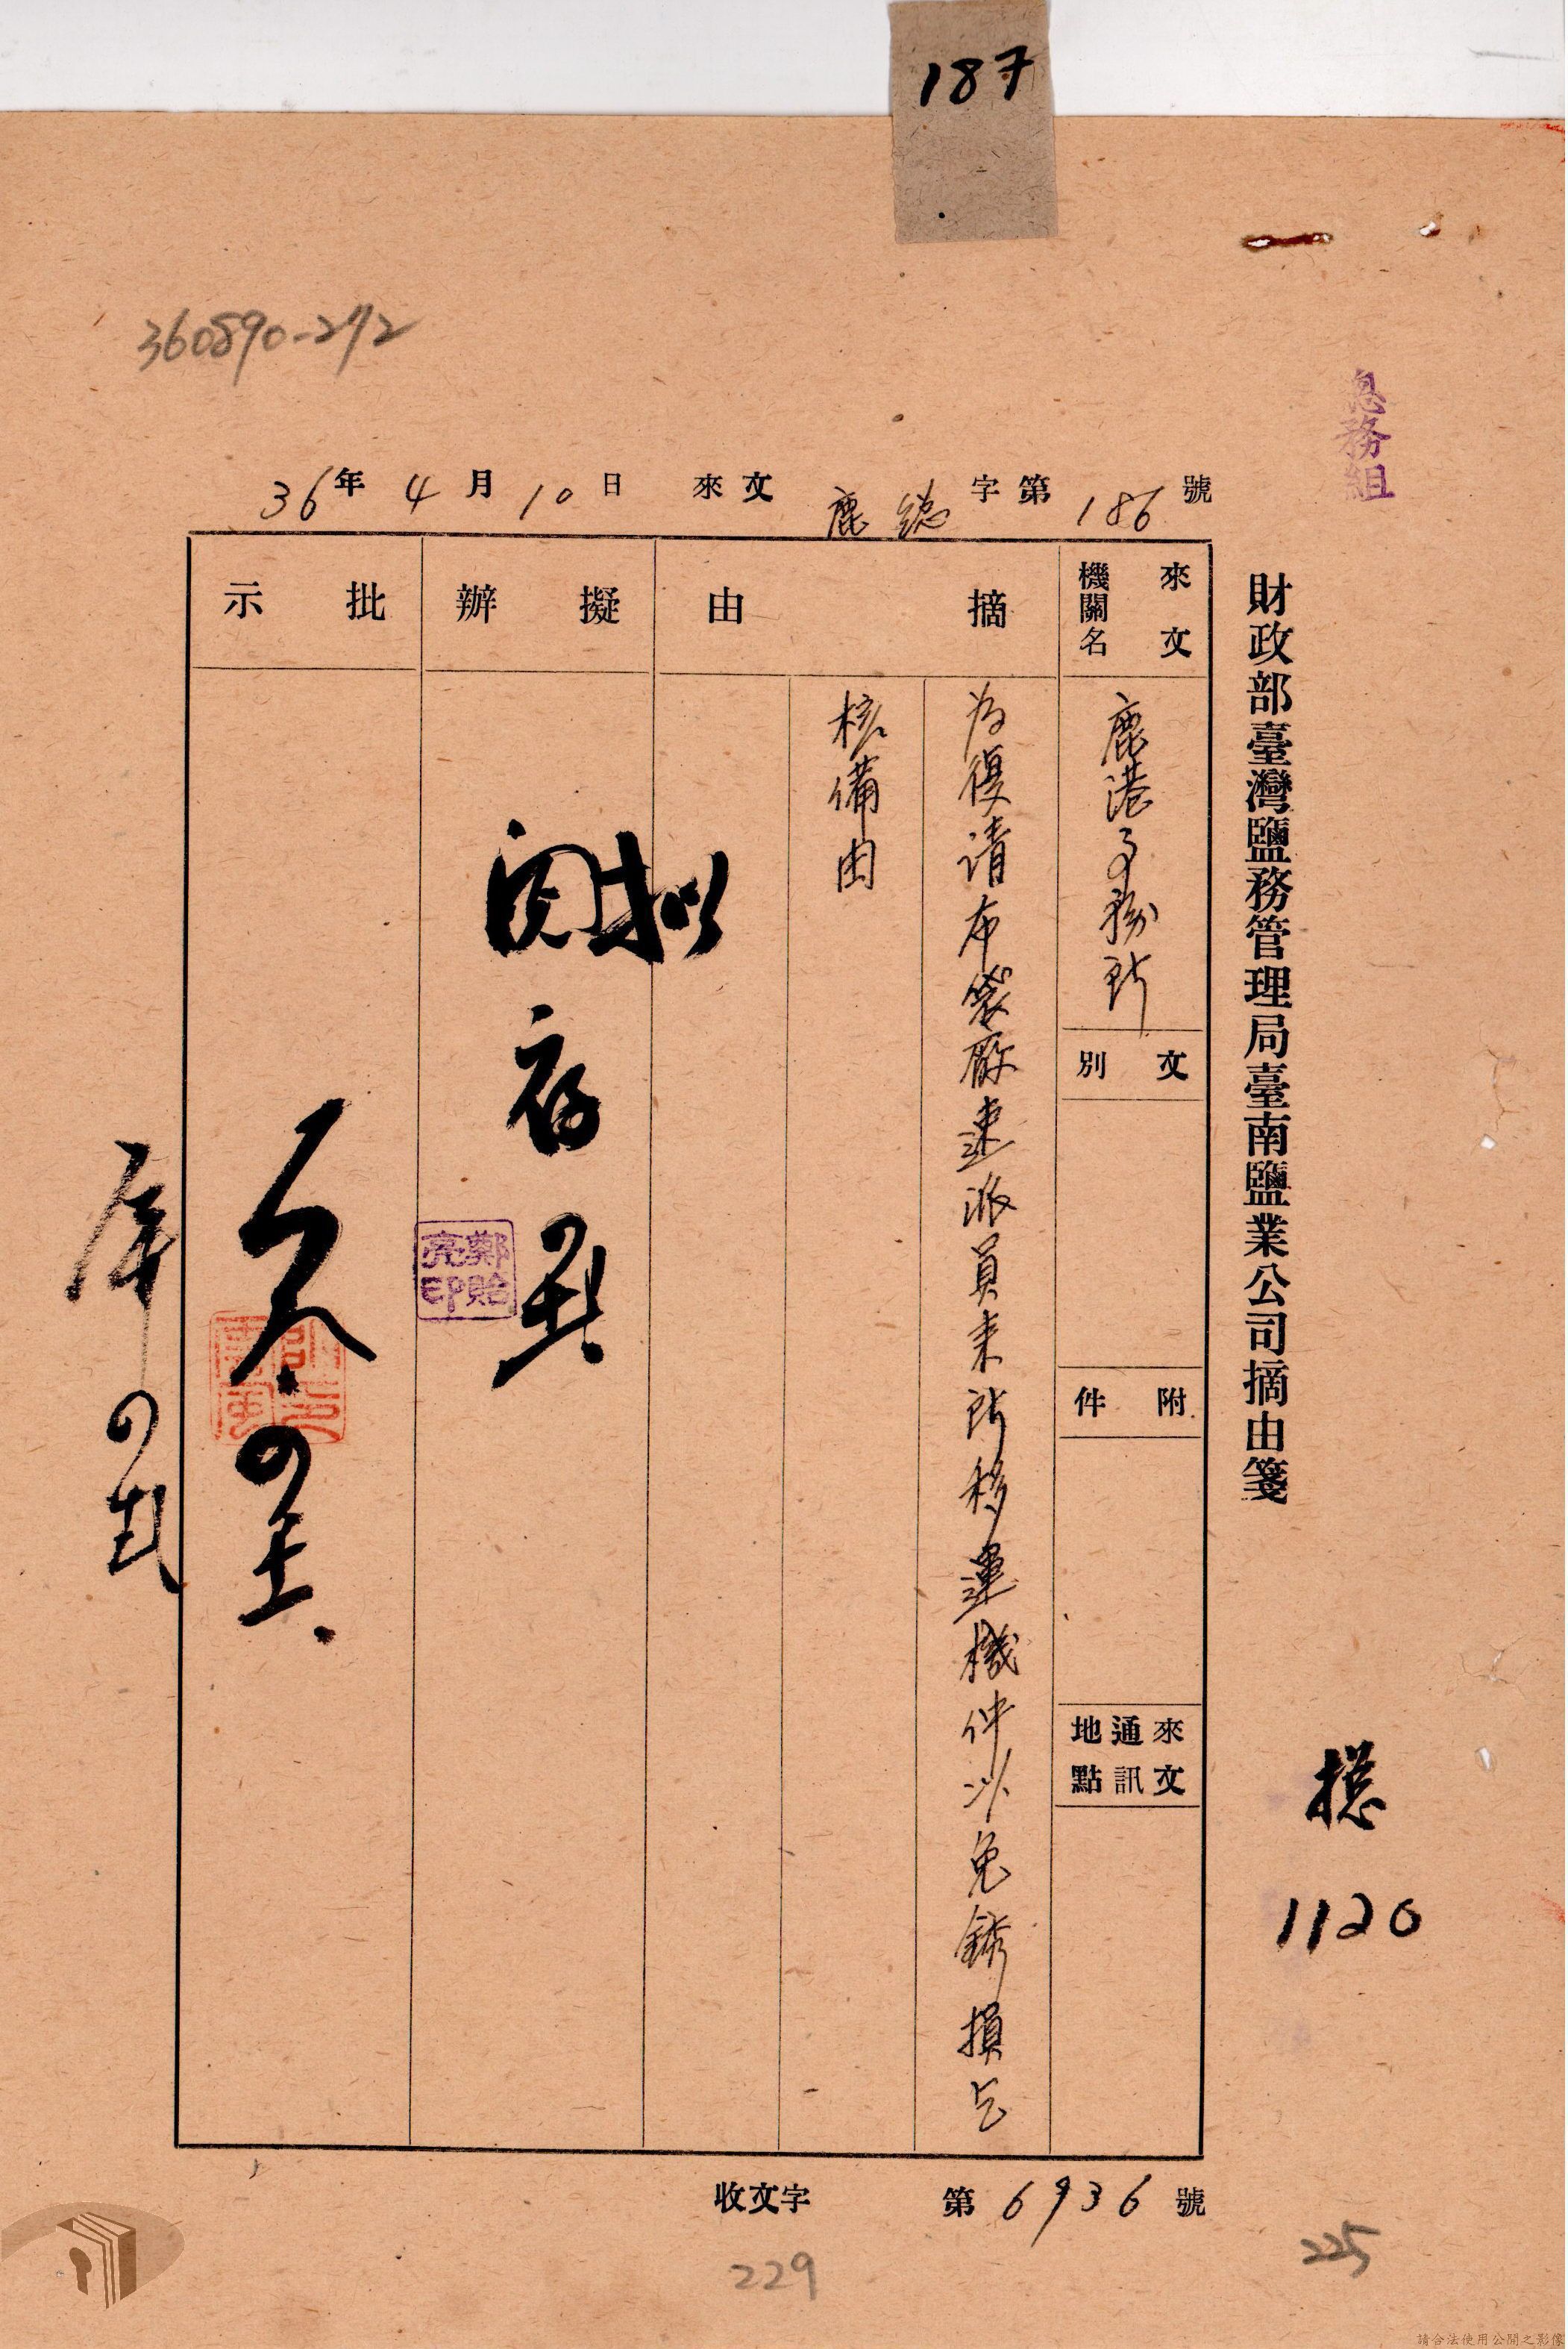 187
360890-272
總務組
財政部臺灣鹽務管理局臺南鹽業公司摘由箋
總
1120
36年4月10日 來文 鹿總字第186號
來文機關名
鹿港事務所
文別
附件
來文通訊地點
摘由
為復請布袋廠速派員來所移運機件以免銹損乞
核備由
擬辦
擬
閱
存
鄭貽亮印
批示
收文字 第6936號
229
225
請合法使用公開之影像